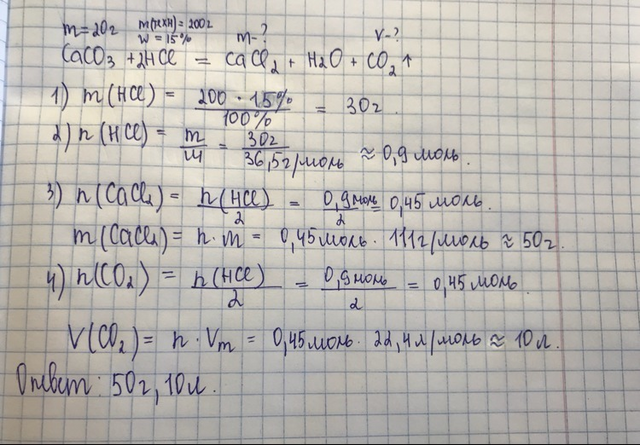 m=20г m(р.хн)=200г m-? V-?
w=15%
CaCO3 + 2HCl = CaCl2 + H2O + CO2↑
1) m(HCl) = 200·15%/100% = 30г
2) n(HCl) = m/M = 30г/36,5г/моль ≈ 0,9 моль.
3) n(CaCl2) = n(HCl)/2 = 0,9моль/2 = 0,45 моль.
m(CaCl2) = n·m = 0,45моль · 111г/моль ≈ 50г.
4) n(CO2) = n(HCl)/2 = 0,9моль/2 = 0,45 моль.
V(CO2) = n·Vm = 0,45моль · 22,4л/моль ≈ 10л.
Ответ: 50г, 10л.